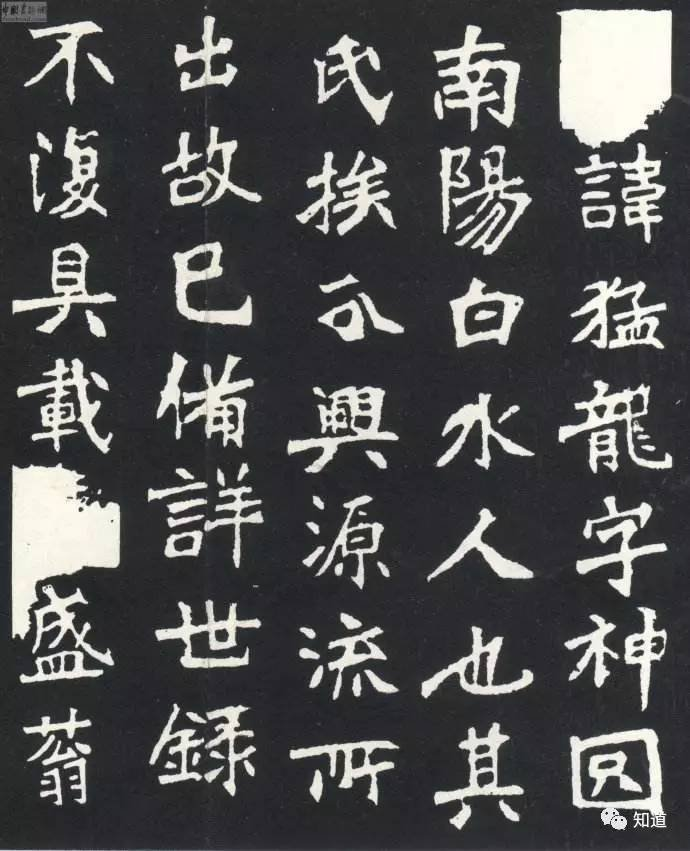 諱猛龍字神囧
南陽白水人也其
氏族分興源流所
出故已備詳世録
不復具載盛蓊
知道